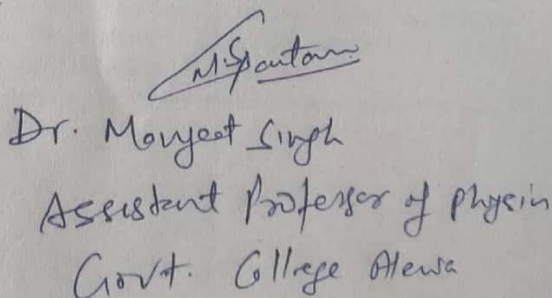 M.S Gautam
Dr. Manjeet Singh
Assistant Professor of Physics
Govt. College Alewa